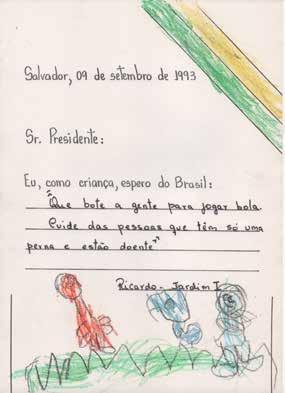 Salvador, 09 de setembro de 1993
Sr. Presidente:
Eu, como criança, espero do Brasil:
"Que bote a gente para jogar bola.
Cuide das pessoas que têm só uma
perna e estão doente"
Ricardo - Jardim I